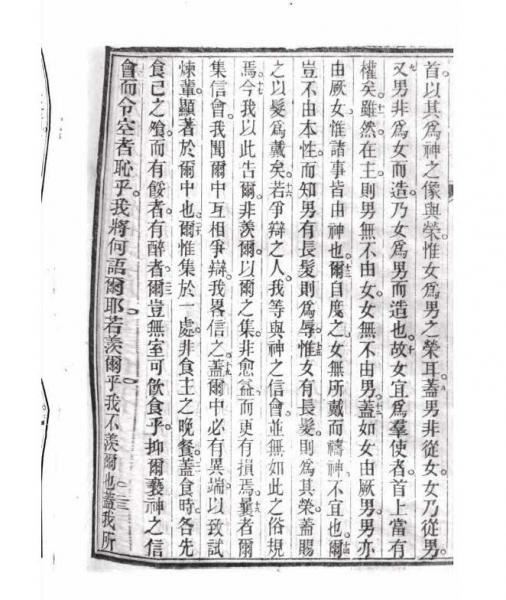 首以其爲神之像與榮惟女爲男之榮耳蓋男非從女女乃從男
九又男非爲女而造乃女爲男而造也十故女宜爲羣使者首上當有
權矣十一雖然在主則男無不由女女無不由男十二蓋如女由厥男男亦
由厥女惟諸事皆由神也十三爾自度之女無所戴而禱神不宜也十四爾
豈不由本性而知男有長髮則爲辱十五惟女有長髮則爲其榮蓋賜
之以髮爲戴矣十六若爭辯之人我等與神之信會並無如此之俗規
焉十七今我以此告爾非羨爾以爾之集非愈益而更有損焉十八曩者爾
集信會我聞爾中互相爭辯我畧信之十九蓋爾中必有異端以致試
煉輩顯著於爾中也二十爾惟集於一處非食主之晚餐二一蓋食時各先
食己之飱而有餒者有醉者二二爾豈無室可飲食乎抑爾褻神之信
會而令空者恥乎我將何語爾耶若羨爾乎我不羨爾也二三蓋我所